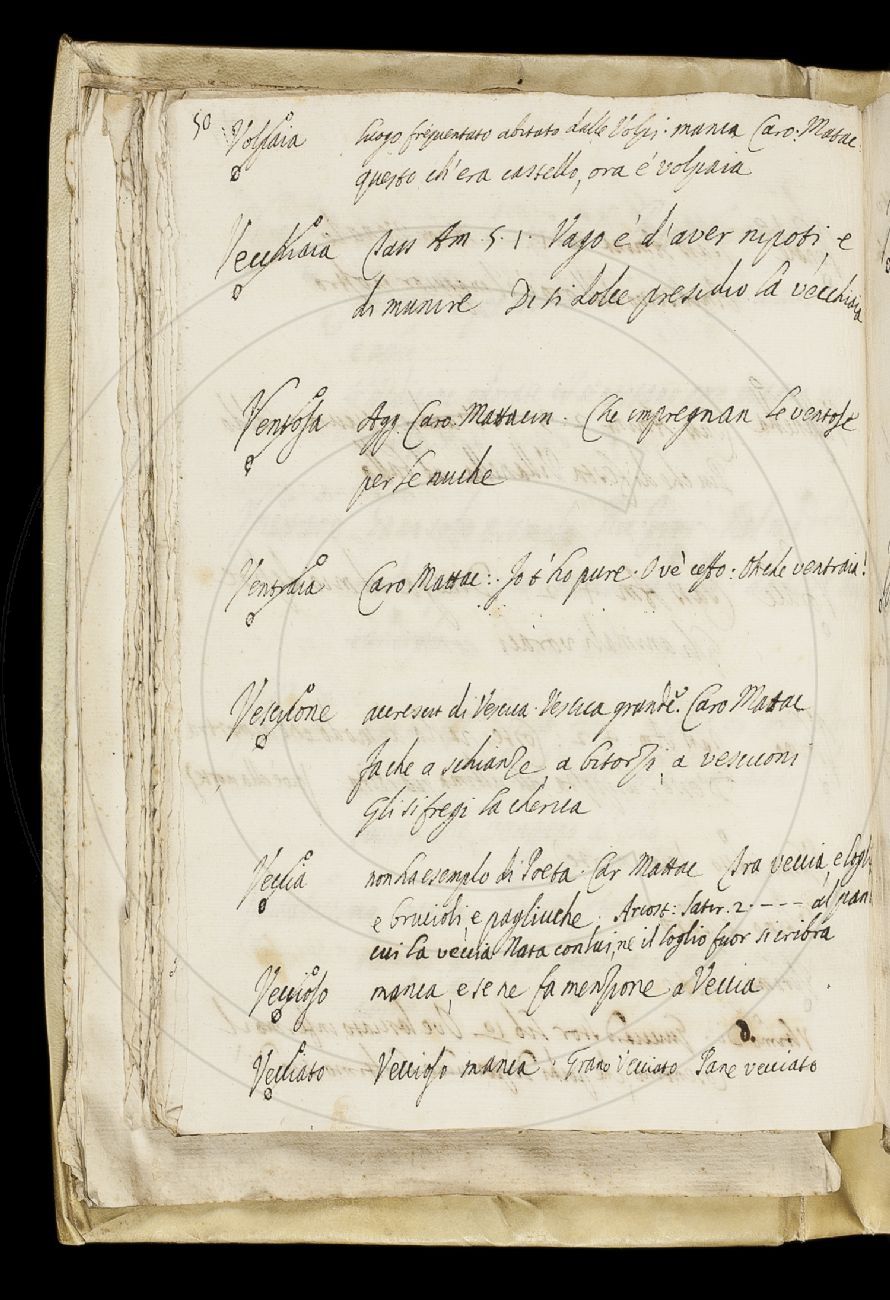 50 Volpaia luogo frequentato abitato dalle Volpi. manca Caro. Mattac.
questo ch'era castello, ora è volpaia
Vecchiaia Tass Am. 5. 1. Vago è d'aver nipoti, e
di munire Di sì dolce presidio la vecchiaia
Ventosa Agg. Caro. Mattacin. Che impregnan le ventose
per le nuche
Ventraia Caro Mattac: Io t'ho pure. O vè ceffo: Oh che ventraia!
Vescicone accrescit di Vescica. Vescica grande. Caro Mattac
fache a schianze, a bitorzi, a vesciconi
Gli si fregi la cherica
Veccia non ha esempio di Poeta. Car Mattac Tra veccia, e logli
e brucioli, e pagliuche. Ariost: Satir. 2. - - - - al pan
cui la veccia Nata con lui, nè il loglio fuor si cribra
Veccioso manca, e se ne fa menzione a Veccia
Vecciato Veccioso manca. Grano Vecciato Pane vecciato